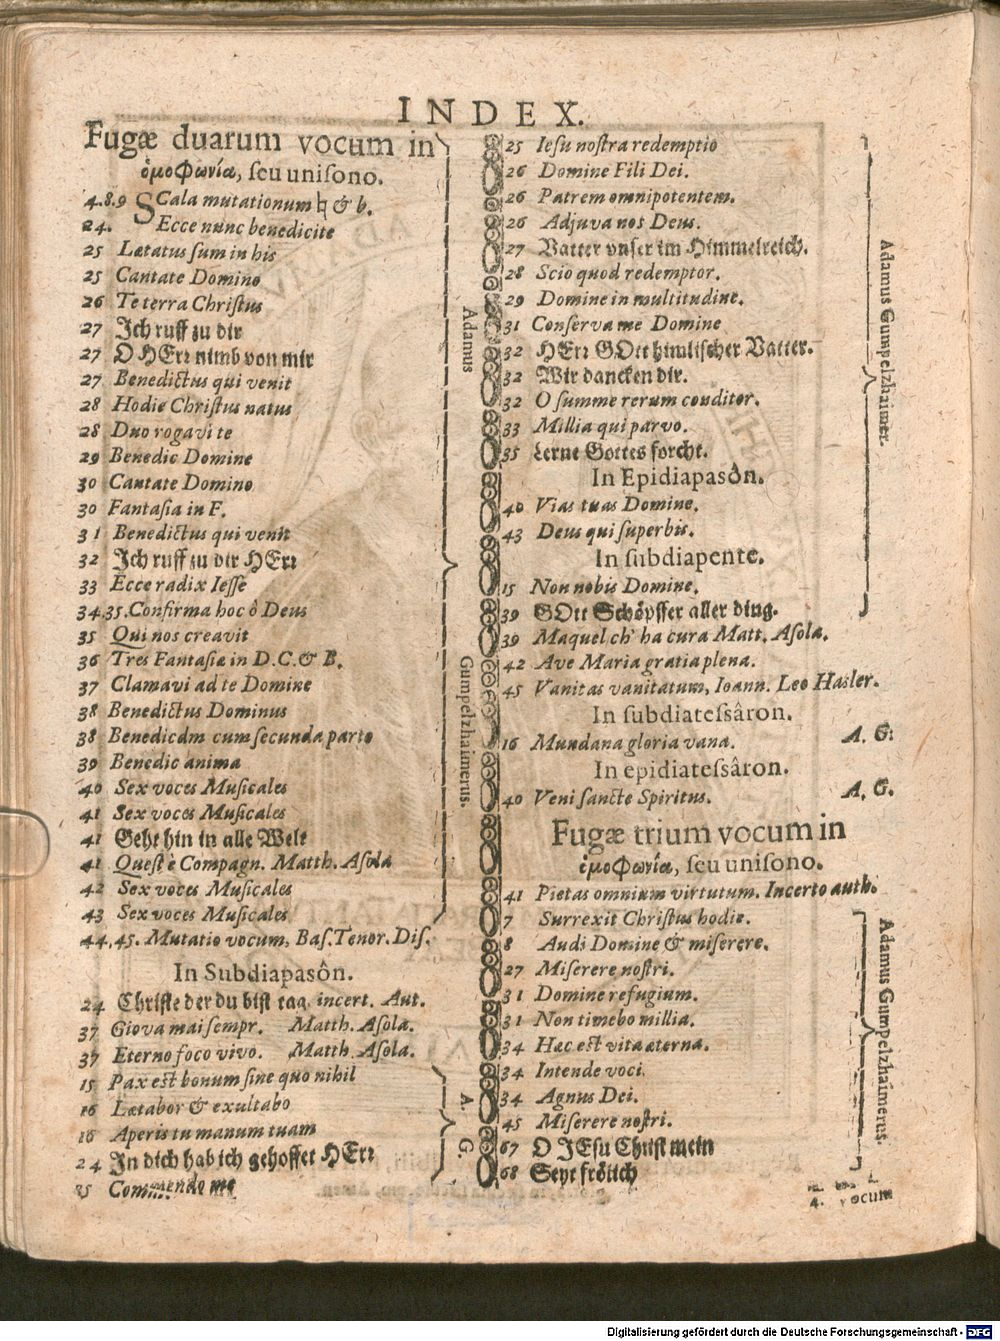 INDEX.
Fugæ duarum vocum in
ὁμοφωνίᾳ, seu unisono.
4.8.9 SCala mutationum ♮ & b.
24. Ecce nunc benedicite
25 Lætatus sum in his
25 Cantate Domino
26 Te terra Christus
27 Ich ruff zu dir
27 O HErr nimb von mir
27 Benedictus qui venit
28 Hodie Christus natus
28 Duo rogavi te
29 Benedic Domine
30 Cantate Domino
30 Fantasia in F.
31 Benedictus qui venit
32 Ich ruff zu dir HErr
33 Ecce radix Iesse
34.35. Confirma hoc ô Deus
35 Qui nos creavit
36 Tres Fantasiæ in D. C. & B.
37 Clamavi ad te Domine
38 Benedictus Dominus
38 Benedicam cum secunda parte
39 Benedic anima
40 Sex voces Musicales
41 Sex voces Musicales
41 Geht hin in alle Welt
41 Quest è Compagn. Matth. Asola
42 Sex voces Musicales
43 Sex voces Musicales
44.45. Mutatio vocum, Bas. Tenor. Dis.
Adamus
Gumpelzhaimerus.
In Subdiapasôn.
24 Christe der du bist tag, incert. Aut.
37 Giova mai sempr. Matth. Asola.
37 Eterno foco vivo. Matth. Asola.
15 Pax est bonum sine quo nihil
16 Lætabor & exultabo
16 Aperis tu manum tuam
24 In dich hab ich gehoffet HErr
35 Commendo me
A. G.
25 Iesu nostra redemptio
26 Domine Fili Dei.
26 Patrem omnipotentem.
26 Adjuva nos Deus.
27 Vatter unser im Himmelreich.
28 Scio quod redemptor.
29 Domine in multitudine.
31 Conserva me Domine
32 HErr GOtt himlischer Vatter.
32 Wir dancken dir.
32 O summe rerum conditor.
33 Millia qui parvo.
35 Lerne Gottes forcht.
In Epidiapasôn.
40 Vias tuas Domine.
43 Deus qui superbis.
In subdiapente.
15 Non nobis Domine.
39 GOtt Schöpffer aller ding.
Adamus Gumpelzhaimer.
39 Maquel ch' ha cura Matt. Asola.
42 Ave Maria gratia plena.
45 Vanitas vanitatum, Ioann. Leo Hasler.
In subdiatessâron.
16 Mundana gloria vana. A. G.
In epidiatessâron.
40 Veni sancte Spiritus. A. G.
Fugæ trium vocum in
ὁμοφωνίᾳ, seu unisono.
41 Pietas omnium virtutum. Incerto auth.
7 Surrexit Christus hodie.
8 Audi Domine & miserere.
27 Miserere nostri.
31 Domine refugium.
31 Non timebo millia.
34 Hæc est vita æterna.
34 Intende voci.
34 Agnus Dei.
45 Miserere nostri.
67 O JEsu Christ mein
68 Seyt frölich
Adamus Gumpelzhaimerus.
4. vocum
Digitalisierung gefördert durch die Deutsche Forschungsgemeinschaft - DFG